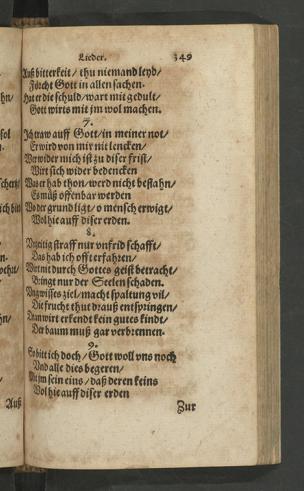 Lieder. 349
Auß bitterkeit / thu niemand leyd /
Förcht Gott in allen sachen.
Hat er die schuld / wart mit gedult /
Gott wirts mit jm wol machen.
7.
Ich traw auff Gott / in meiner not /
Er wird von mir nit lencken /
Wer wider mich ist zu diser frist /
Wirt sich wider bedencken
Was er hab thon / werd nicht bestahn /
Es muß offenbar werden
Wo der grund ligt / o mensch erwigt /
Wol hie auff diser erden.
8.
Unzeitig straff nur unfrid schafft /
Das hab ich offt erfahren /
Wer nit durch Gottes geist betracht /
Bringt nur der Seelen schaden.
Ungwisses ziel / macht spaltung vil /
Die frucht thut drauß entspringen /
Dann wirt erkendt kein gutes kindt /
Der baum muß gar verbrennen.
9.
So bitt ich doch / Gott woll vns noch
Vnd alle dies begeren /
Mit jm sein eins / daß deren keins
Wol hie auff diser erden
Zur
hn /
sol
scherz
ich bitt
ocht /
hn /
Auß